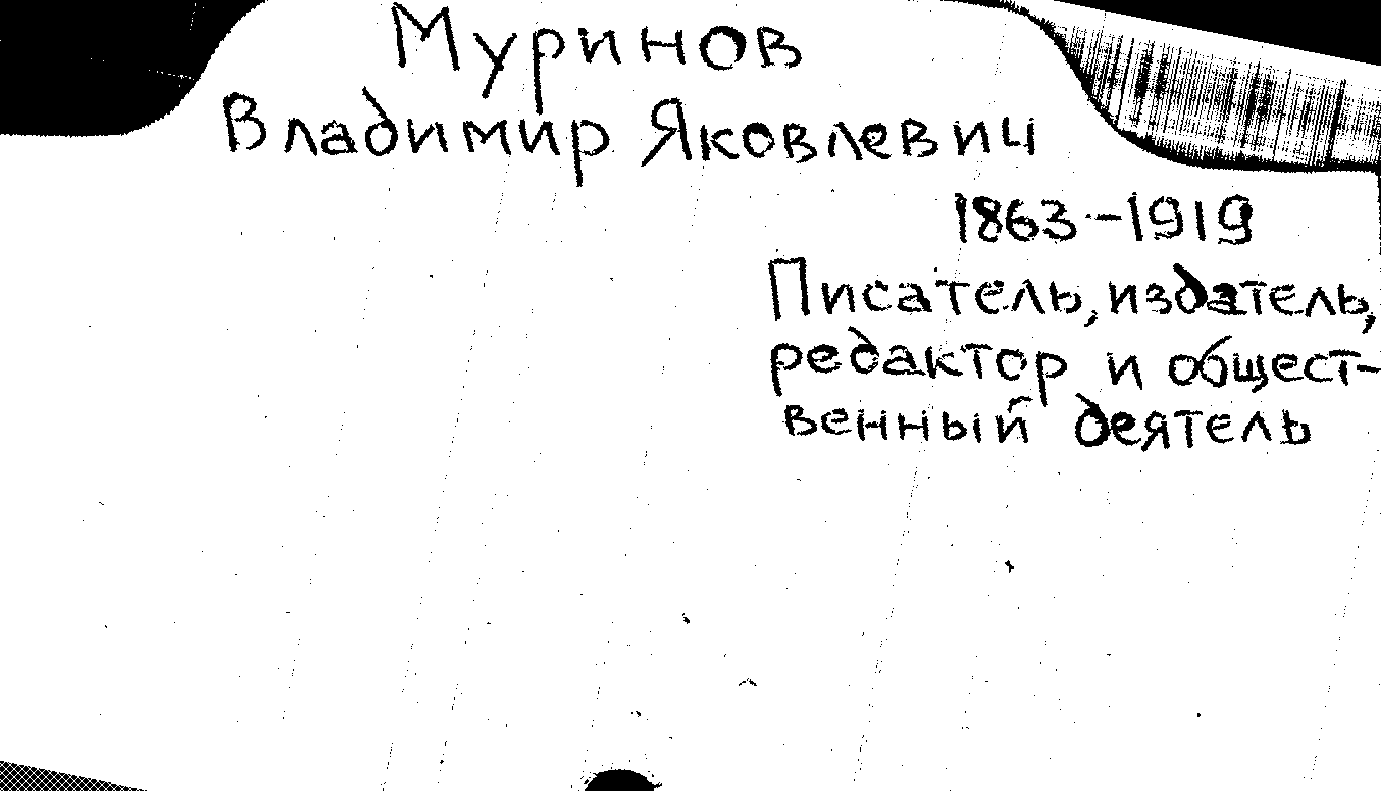 Муринов
Владимир Яковлевич
1863-1919
Писатель, издатель,
редактор и общест-
венный деятель